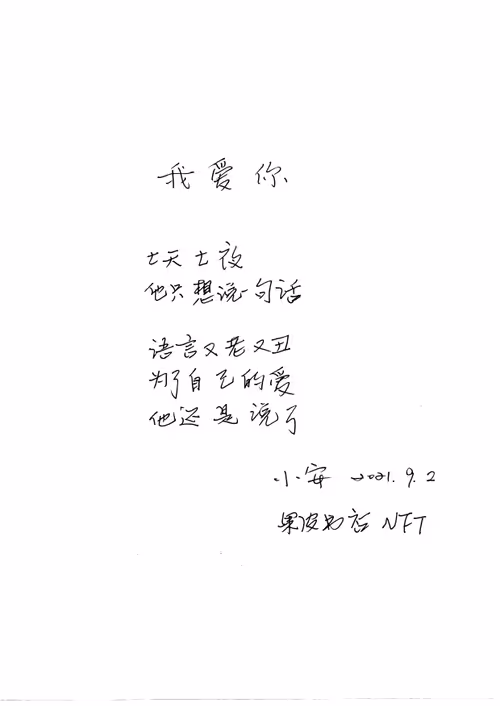 我爱你
七天七夜
他只想说一句话
语言又老又丑
为了自己的爱
他还是说了
小安 2021.9.2
果皮书店 NFT